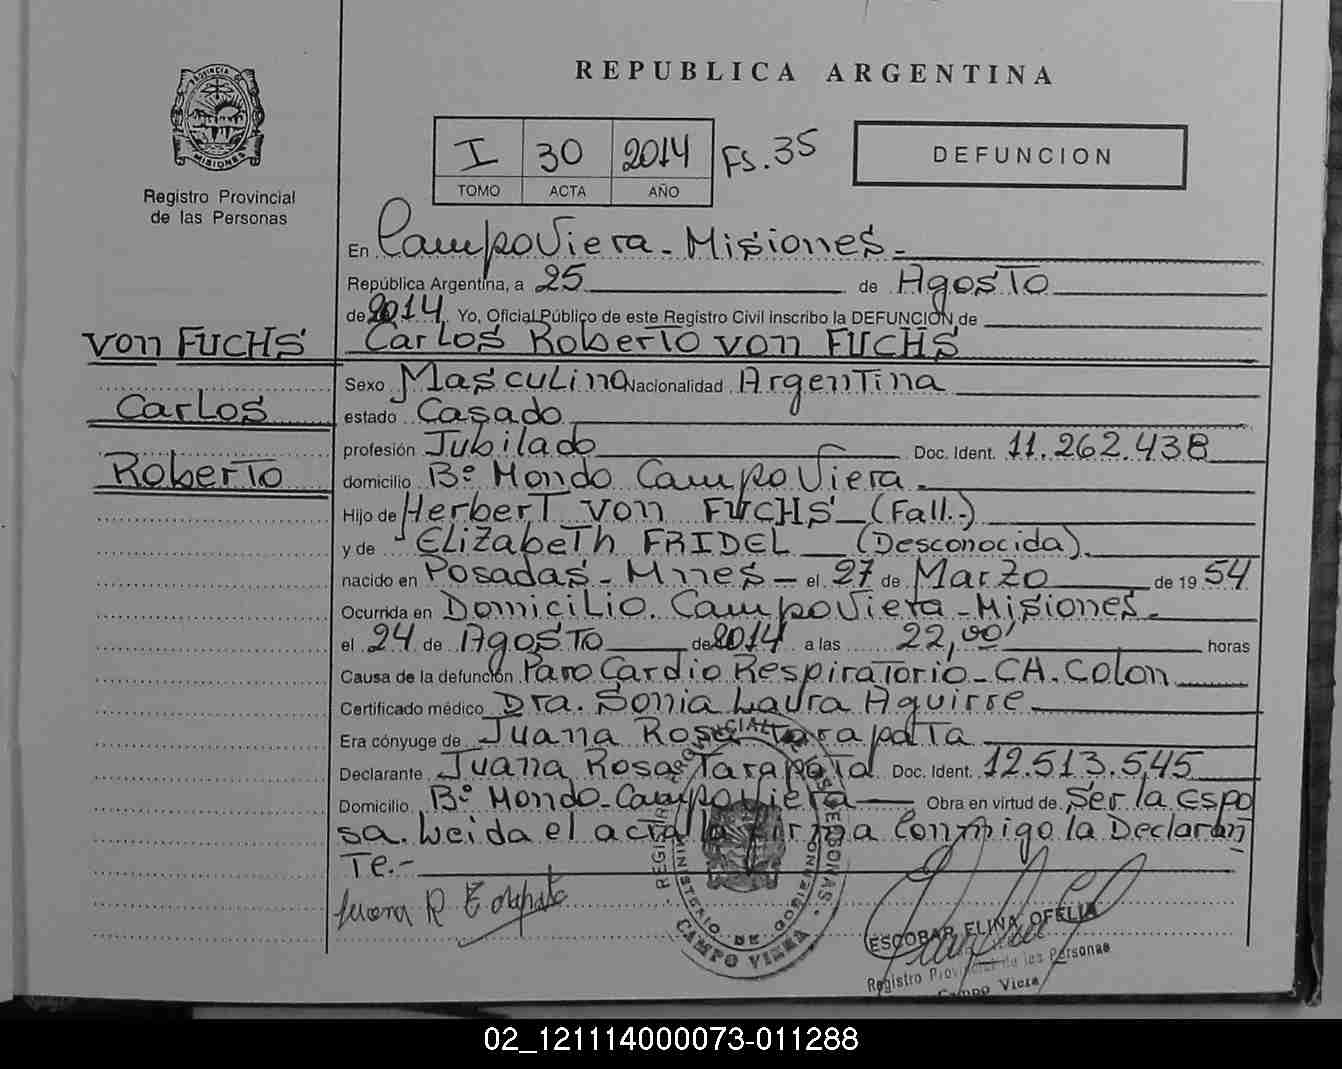 REPUBLICA ARGENTINA
PROVINCIA DE
MISIONES
Registro Provincial
de las Personas
I 30 2014 FS.35
TOMO ACTA AÑO
DEFUNCION
En Campo Viera - Misiones -
República Argentina, a 25 de Agosto
de 2014. Yo, Oficial Público de este Registro Civil inscribo la DEFUNCIÓN de
Carlos Roberto von FUCHS
von FUCHS
Carlos
Roberto
Sexo Masculino Nacionalidad Argentina
estado Casado
profesión Jubilado Doc. Ident. 11.262.438
domicilio Bº Mondo Campo Viera -
Hijo de Herbert von FUCHS - (Fall.-)
y de Elizabeth FRIDEL (Desconocida).
nacido en Posadas - Mnes - el 27 de Marzo de 1954
Ocurrida en Domicilio. Campo Viera - Misiones -
el 24 de Agosto de 2014 a las 22,00' horas
Causa de la defunción Paro Cardio Respiratorio - CA. Colon
Certificado médico Dra. Sonia Laura Aguirre
Era cónyuge de Juana Rosa Tarapata
Declarante Juana Rosa Tarapata Doc. Ident. 12.513.545
Domicilio Bº Mondo - Campo Viera Obra en virtud de Ser la espo
sa. Leida el acta la firma Conmigo la Declaran
Te.-
Juana R
REGISTRO PROVINCIAL DE LAS PERSONAS
MINISTERIO DE GOBIERNO
CAMPO VIERA
ESCOBAR ELINA OFELIA
Registro Provincial de las Personas
Campo Viera
02_121114000073-011288